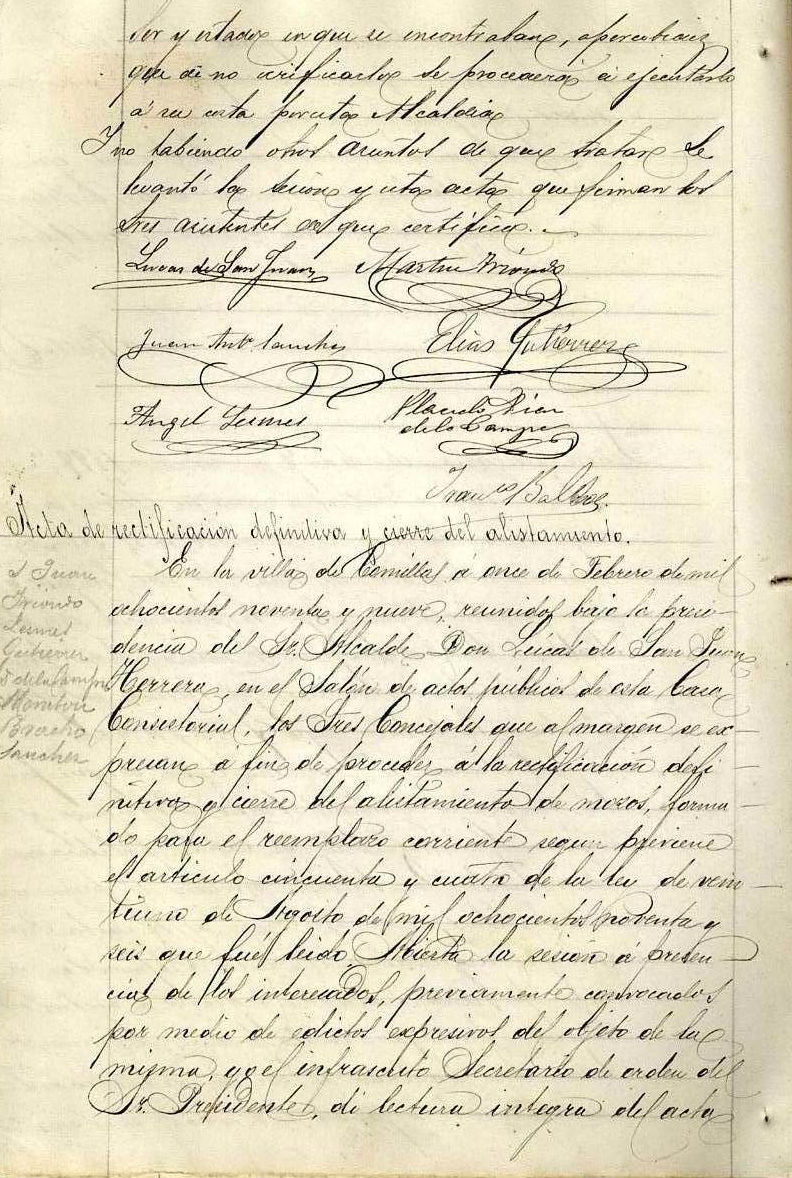 ser y estado en que se encontraban, apercibidos
que de no verificarlo se procederá á ejecutarlo
á su costa por esta Alcaldia
Y no habiendo otros asuntos de que tratar se
levantó la sesión y esta acta que firman los
Sres asistentes de que certifico.
Lucas de San Juan Martin Iriondo
Juan Anto Sanchez Elias Gutierrez
Angel Lesmes Placido Diaz
de la Campa
Franco Balboa
Acta de rectificación definitiva y cierre del alistamiento.
S Juan
Iriondo
Lesmes
Gutierrez
D de la Campa
Bracho
Sanchez
En la villa de Comillas á once de Febrero de mil
ochocientos noventa y nueve, reunidos bajo la presi-
dencia del Sr. Alcalde Don Lúcas de San Juan
Herrera, en el Salón de actos públicos de esta Casa
Consistorial, los Sres Concejales que al margen se ex-
presan á fin de proceder á la rectificación defi-
nitiva y cierre del alistamiento de mozos, forma-
do para el reemplazo corriente segun previene
el articulo cincuenta y cuatro de la ley de vein-
tiuno de Agosto de mil ochocientos noventa y
seis que fué leido. Abierta la sesión á presen-
cia de los interesados, previamente convocados
por medio de edictos expresivos del objeto de la
misma, yo el infrascrito Secretario de orden del
Sr. Presidente, di lectura integra del acta